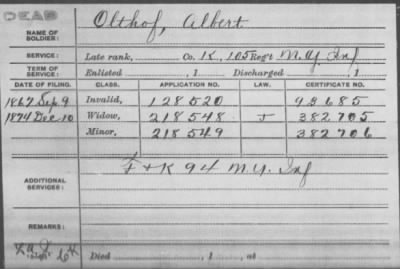 DEAD
NAME OF SOLDIER: Olthof, Albert
SERVICE: Late rank, Co. K, 105 Reg't N.Y. Inf
TERM OF SERVICE: Enlisted , 1 Discharged , 1
DATE OF FILING. CLASS. APPLICATION NO. LAW. CERTIFICATE NO.
1867 Sep. 9 Invalid, 128520 93685
1874 Dec 10 Widow, 218548 J 382705
Minor, 218549 382706
ADDITIONAL SERVICES: F + K 94 N.Y. Inf
REMARKS:
Died , 1 , at